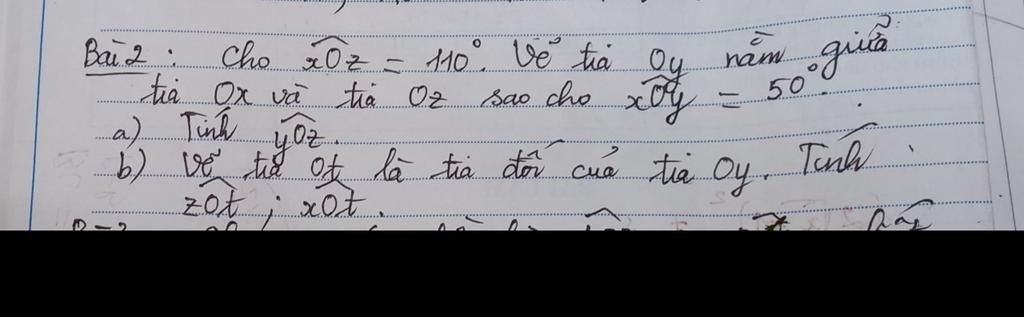 Bài 2 : Cho xOz = 110°. Vẽ tia Oy nằm giữa
tia Ox và tia Oz sao cho xOy = 50°.
a) Tính yOz.
b) Vẽ tia Ot là tia đối của tia Oy. Tính
zOt ; xOt.